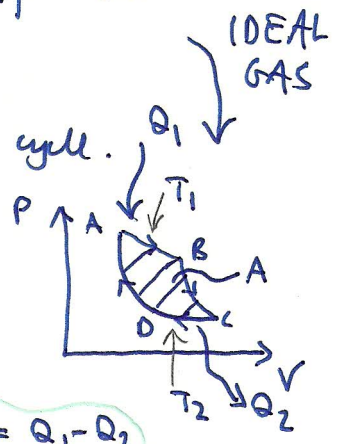 IDEAL
GAS
Q₁
cycle.
T₁
P
A
B
A
D
C
V
T₂
Q₂
= Q₁ - Q₂